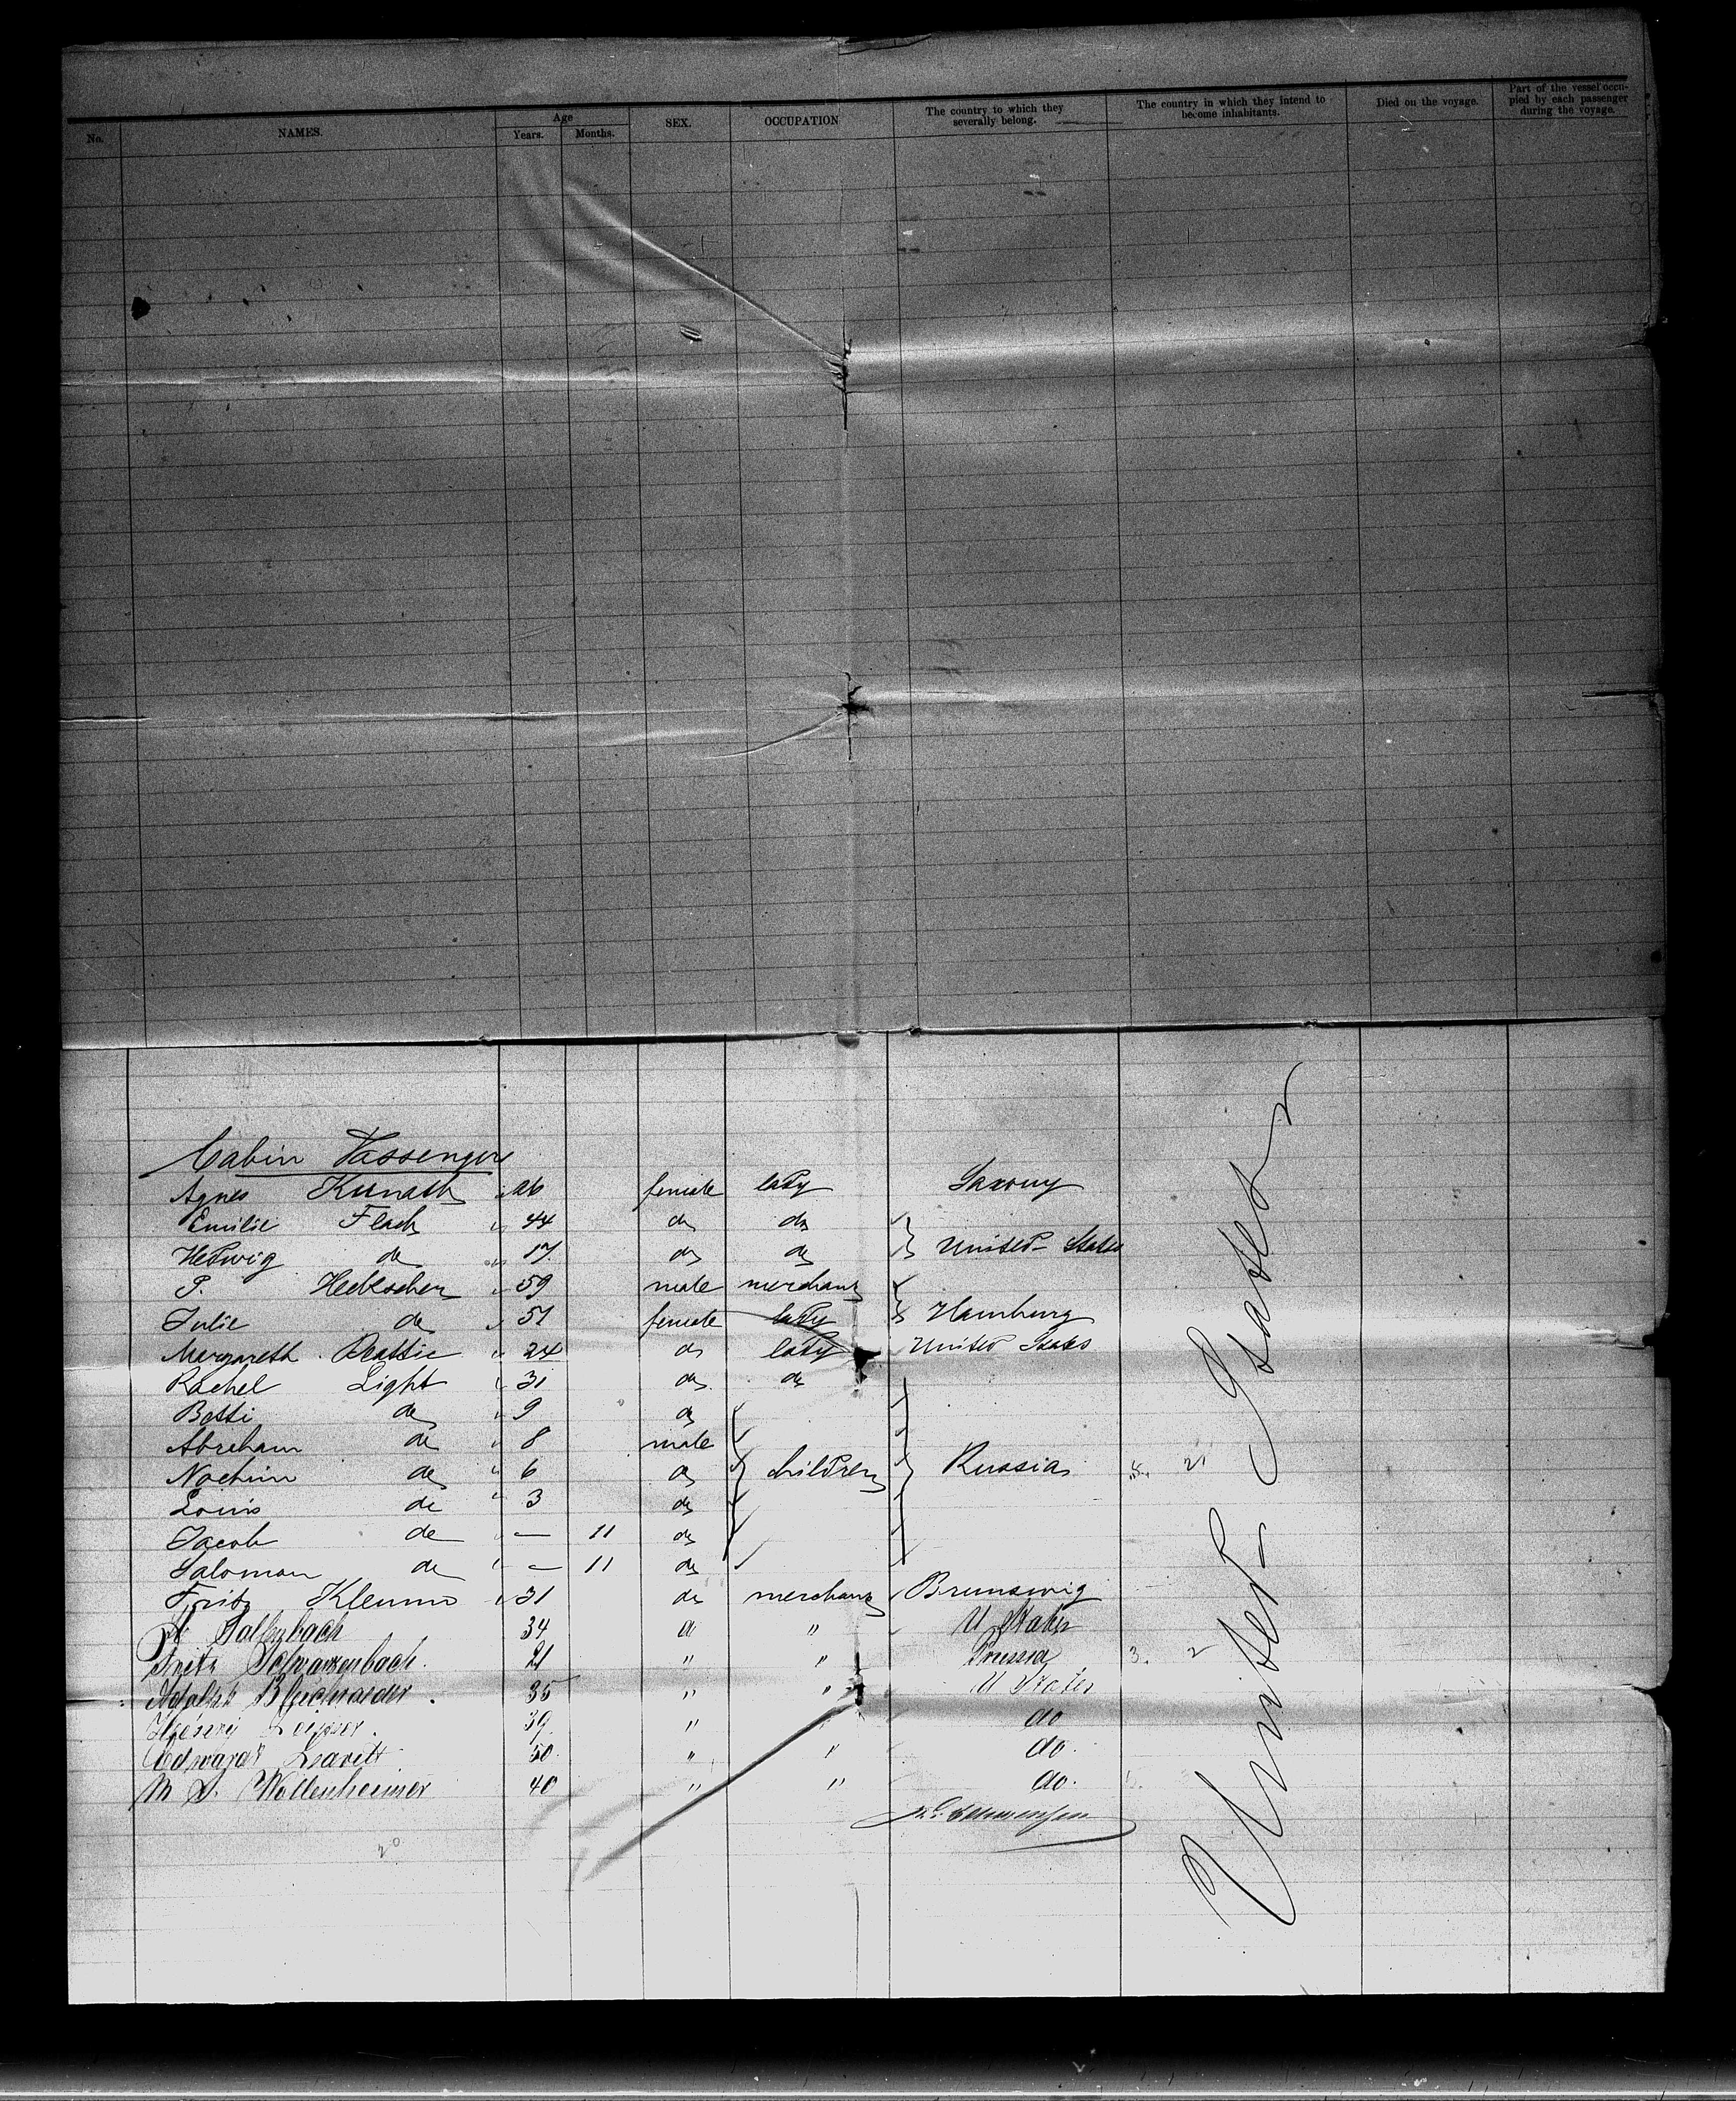 No. NAMES. Age Years. Months. SEX. OCCUPATION The country to which they severally belong. The country in which they intend to become inhabitants. Died on the voyage. Part of the vessel occupied by each passenger during the voyage.
Cabin Passengers
Agnes Kunath 26 female lady Saxony
Emilie Flach 44 do do
Hedwig do 17 do do United States
P. Heckscher 59 male merchant
Julie do 51 female lady Hamburg
Margareth 24 do lady United States
Rachel Light 31 do do
Betti do 9 do
Abraham do 8 male
Nochim do 6 do children Russia
Louis do 3 do
Jacob do — 11 do
Salomon do — 11 do
Fritz Klemm 31 do merchant Brunswig
34 " U States
Fritz Schwarzenbach. 21 " " Prussia
Adolph Bleichroeder. 35 " " U States
Henry 39 " " do
Edward Leavitt 50. " " do.
M S. Wollenheimer 40 " " do.
20
United States